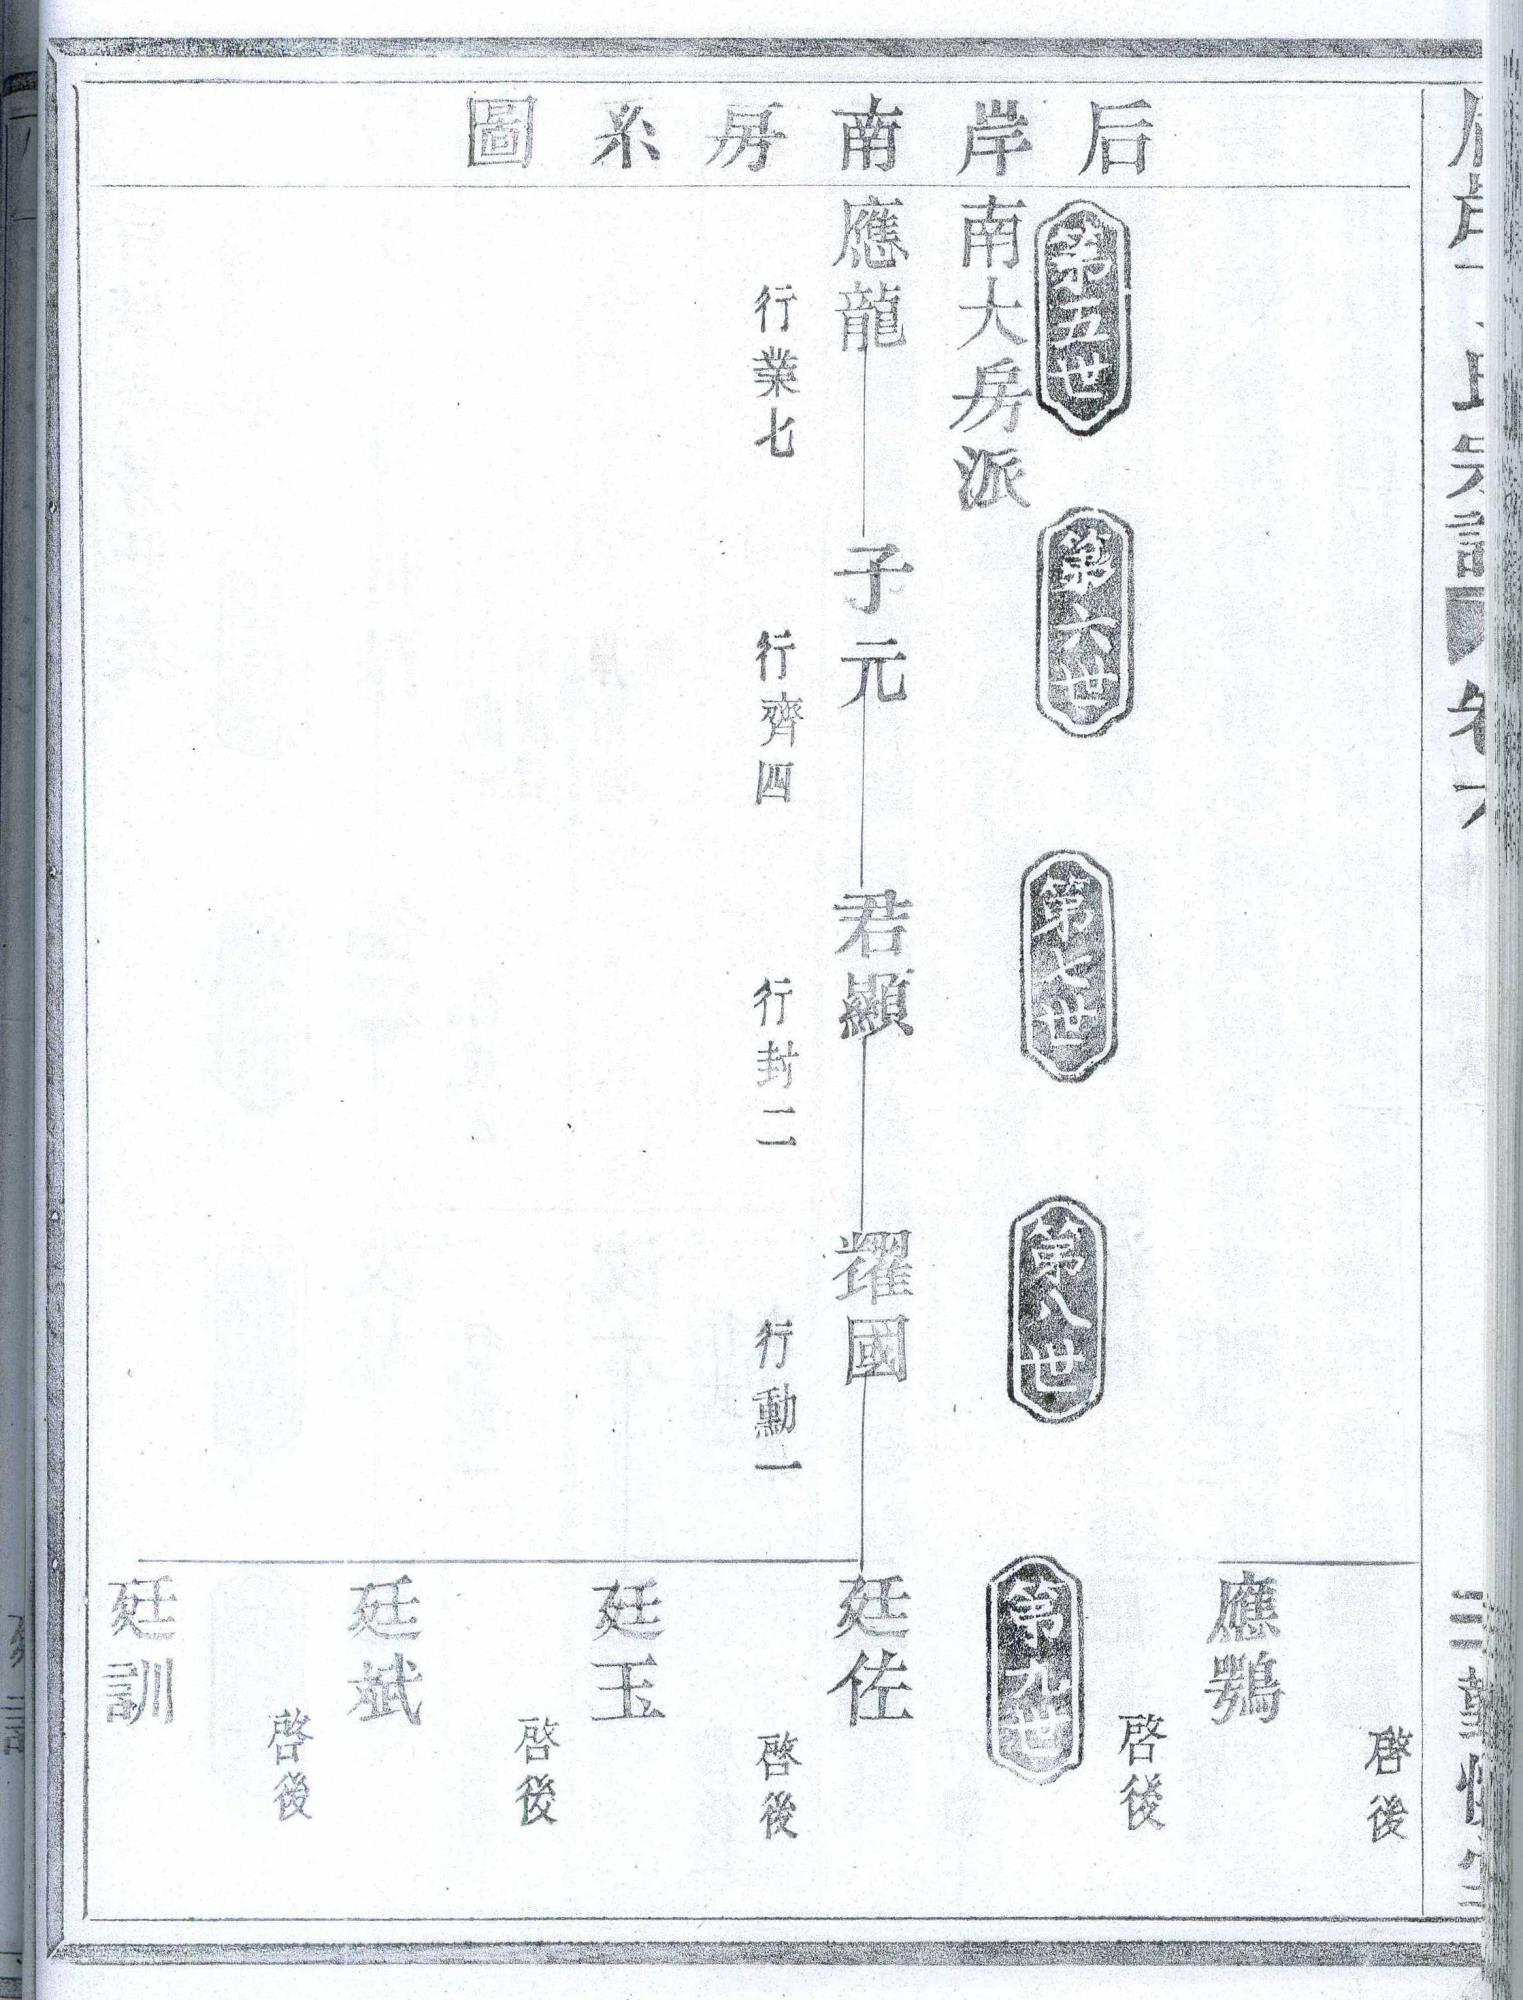 后岸南房系圖
啓後
應鶚
啓後
第五世
第六世
第七世
第八世
第九世
南大房派
應龍
子元
君顯
耀國
廷佐
行業七
行齊四
行封二
行勳一
啓後
廷玉
啓後
廷斌
啓後
廷訓